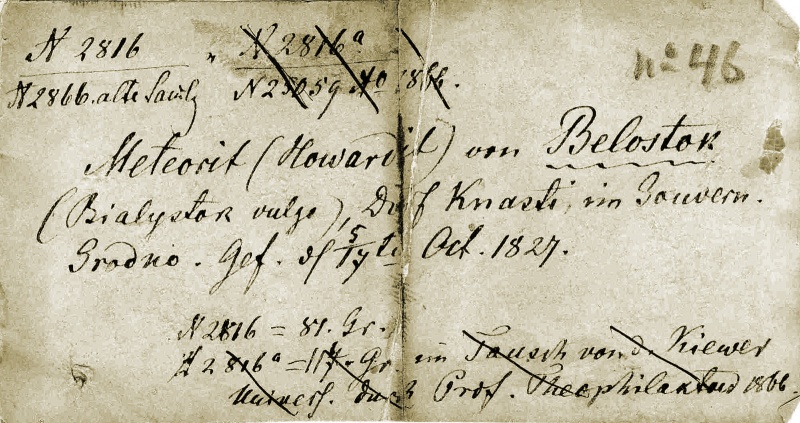 N 2816 " N 2816a nº 46
N 2866. alte Saml N 25059 Ao 1866.
Meteorit (Howardit) von Belostok
(Bialystok vulgo), Dorf Knasti, im Gouvern.
Grodno. Gef. d 5/17ten Oct. 1827.
N 2816 = 81. Gr.
N 2816a = 117. Gr. im Tausch von d. Kiewer
Univers. durch Prof. Theophilaktow 1866.